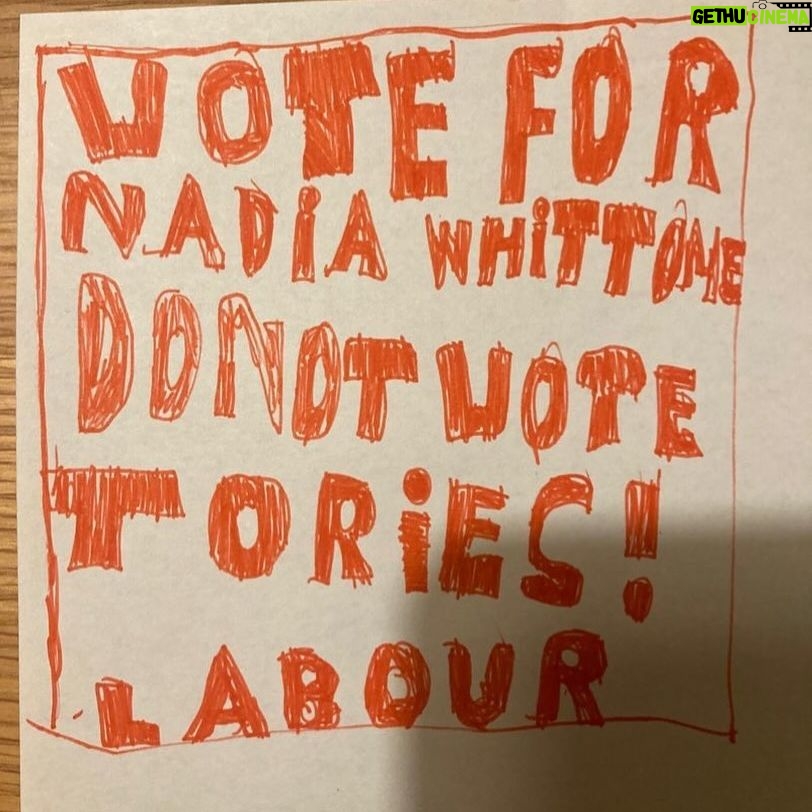 GETHUCINEMA
VOTE FOR
NADIA WHITTOME
DO NOT VOTE
TORIES!
LABOUR